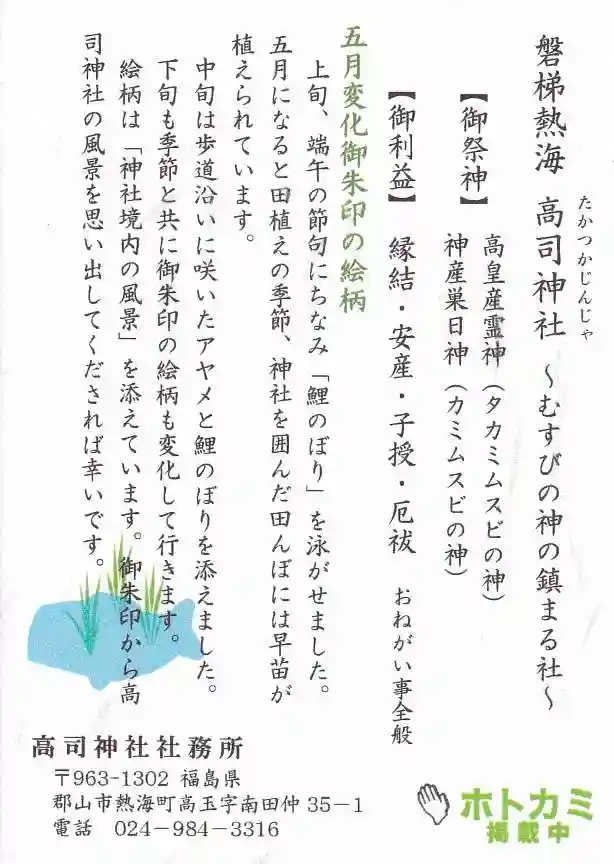 磐梯熱海　高司神社　～むすびの神の鎮まる社～
たかつかじんじゃ
【御祭神】　高皇産霊神（タカミムスビの神）
神産巣日神（カミムスビの神）
【御利益】　縁結・安産・子授・厄祓　おねがい事全般
五月変化御朱印の絵柄
上旬、端午の節句にちなみ「鯉のぼり」を泳がせました。
五月になると田植えの季節、神社を囲んだ田んぼには早苗が
植えられています。
中旬は歩道沿いに咲いたアヤメと鯉のぼりを添えました。
下旬も季節と共に御朱印の絵柄も変化して行きます。
絵柄は「神社境内の風景」を添えています。御朱印から高
司神社の風景を思い出してくだされば幸いです。
高司神社社務所
〒963-1302 福島県
郡山市熱海町高玉字南田仲35－1
電話　024－984－3316
ホトカミ
掲載中